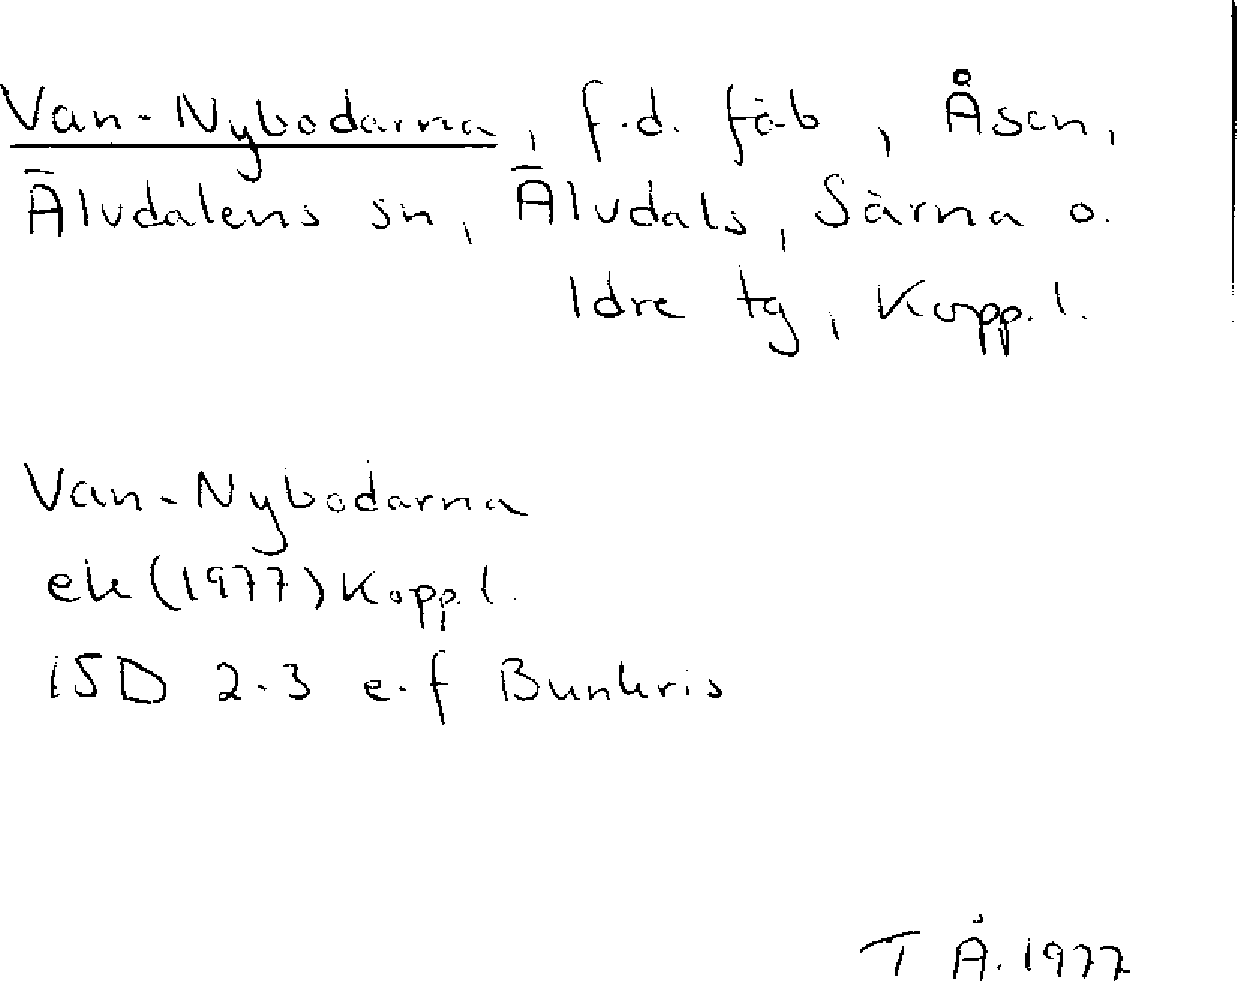 Van-Nybodarna, f.d. fäb, Åsen,
Älvdalens sn, Älvdals, Särna o.
Idre tg, Kopp. l.
Van-Nybodarna
ek (1977) Kopp. l.
15D 2-3 e-f Bunkris
T Å. 1977